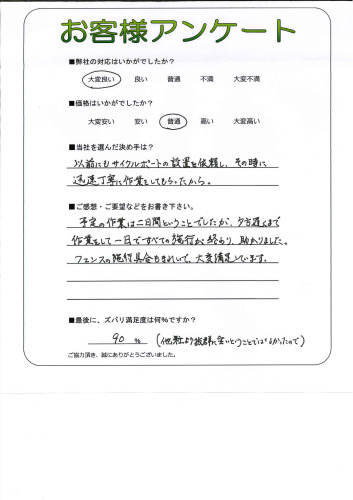 お客様アンケート
■弊社の対応はいかがでしたか?
大変良い 良い 普通 不満 大変不満
■価格はいかがでしたか?
大変安い 安い 普通 高い 大変高い
■当社を選んだ決め手は?
以前にもサイクルポートの設置を依頼し、その時に
迅速丁寧に作業をしてもらったから。
■ご感想・ご要望などをお書き下さい。
予定の作業は二日間ということでしたが、夕方遅くまで
作業をして一日ですべての施行が終わり、助かりました。
フェンスの取付具合もきれいで、大変満足しています。
■最後に、ズバリ満足度は何%ですか?
90 % (他社より抜群に安いということではなかったので)
ご協力頂き、誠にありがとうございました。